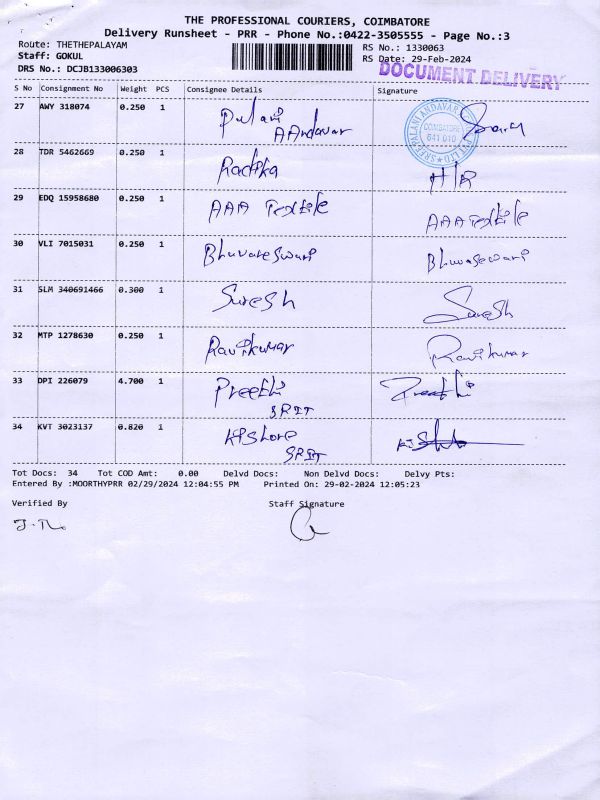 THE PROFESSIONAL COURIERS, COIMBATORE
Delivery Runsheet - PRR - Phone No.:0422-3505555 - Page No.:3
Route: THETHEPALAYAM
RS No.: 1330063
Staff: GOKUL
RS Date: 29-Feb-2024
DRS No.: DCJB133006303
DOCUMENT DELIVERY
S No Consignment No Weight PCS Consignee Details Signature
27 AWY 318074 0.250 1 Palani
AAndavar
COIMBATORE
641 010
28 TDR 5462669 0.250 1 Radhika H/R
29 EDQ 15958680 0.250 1 AAA Textile AAA Textile
30 VLI 7015031 0.250 1 Bhuvaneswari Bhuvaneswari
31 SLM 340691466 0.300 1 Suresh Suresh
32 MTP 1278630 0.250 1 Ravikumar Ravikumar
33 DPI 226079 4.700 1 Preethi Preethi
SRIT
34 KVT 3023137 0.820 1 Kishore
SRIT
Tot Docs: 34 Tot COD Amt: 0.00 Delvd Docs: Non Delvd Docs: Delvy Pts:
Entered By :MOORTHYPRR 02/29/2024 12:04:55 PM Printed On: 29-02-2024 12:05:23
Verified By Staff Signature